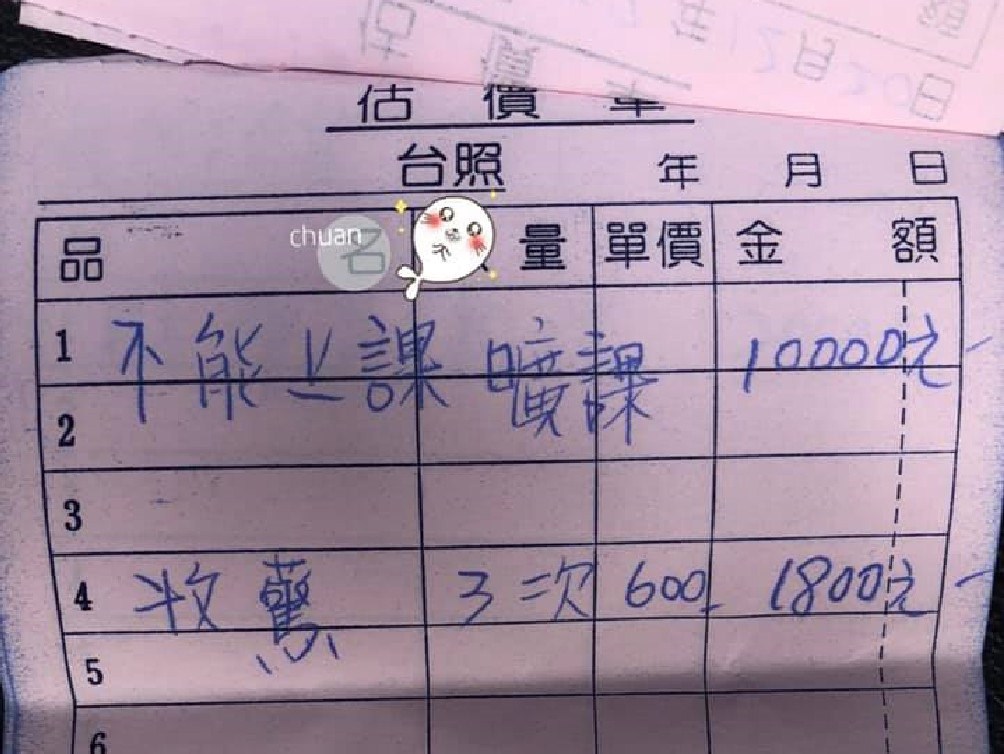 額
年12月30日
估 價 單
台照 年 月 日
品 名 量 單價 金 額
chuan
1 不能上課 曠課 10000元
2
3
4 收驚 3 次 600 1800元
5
6